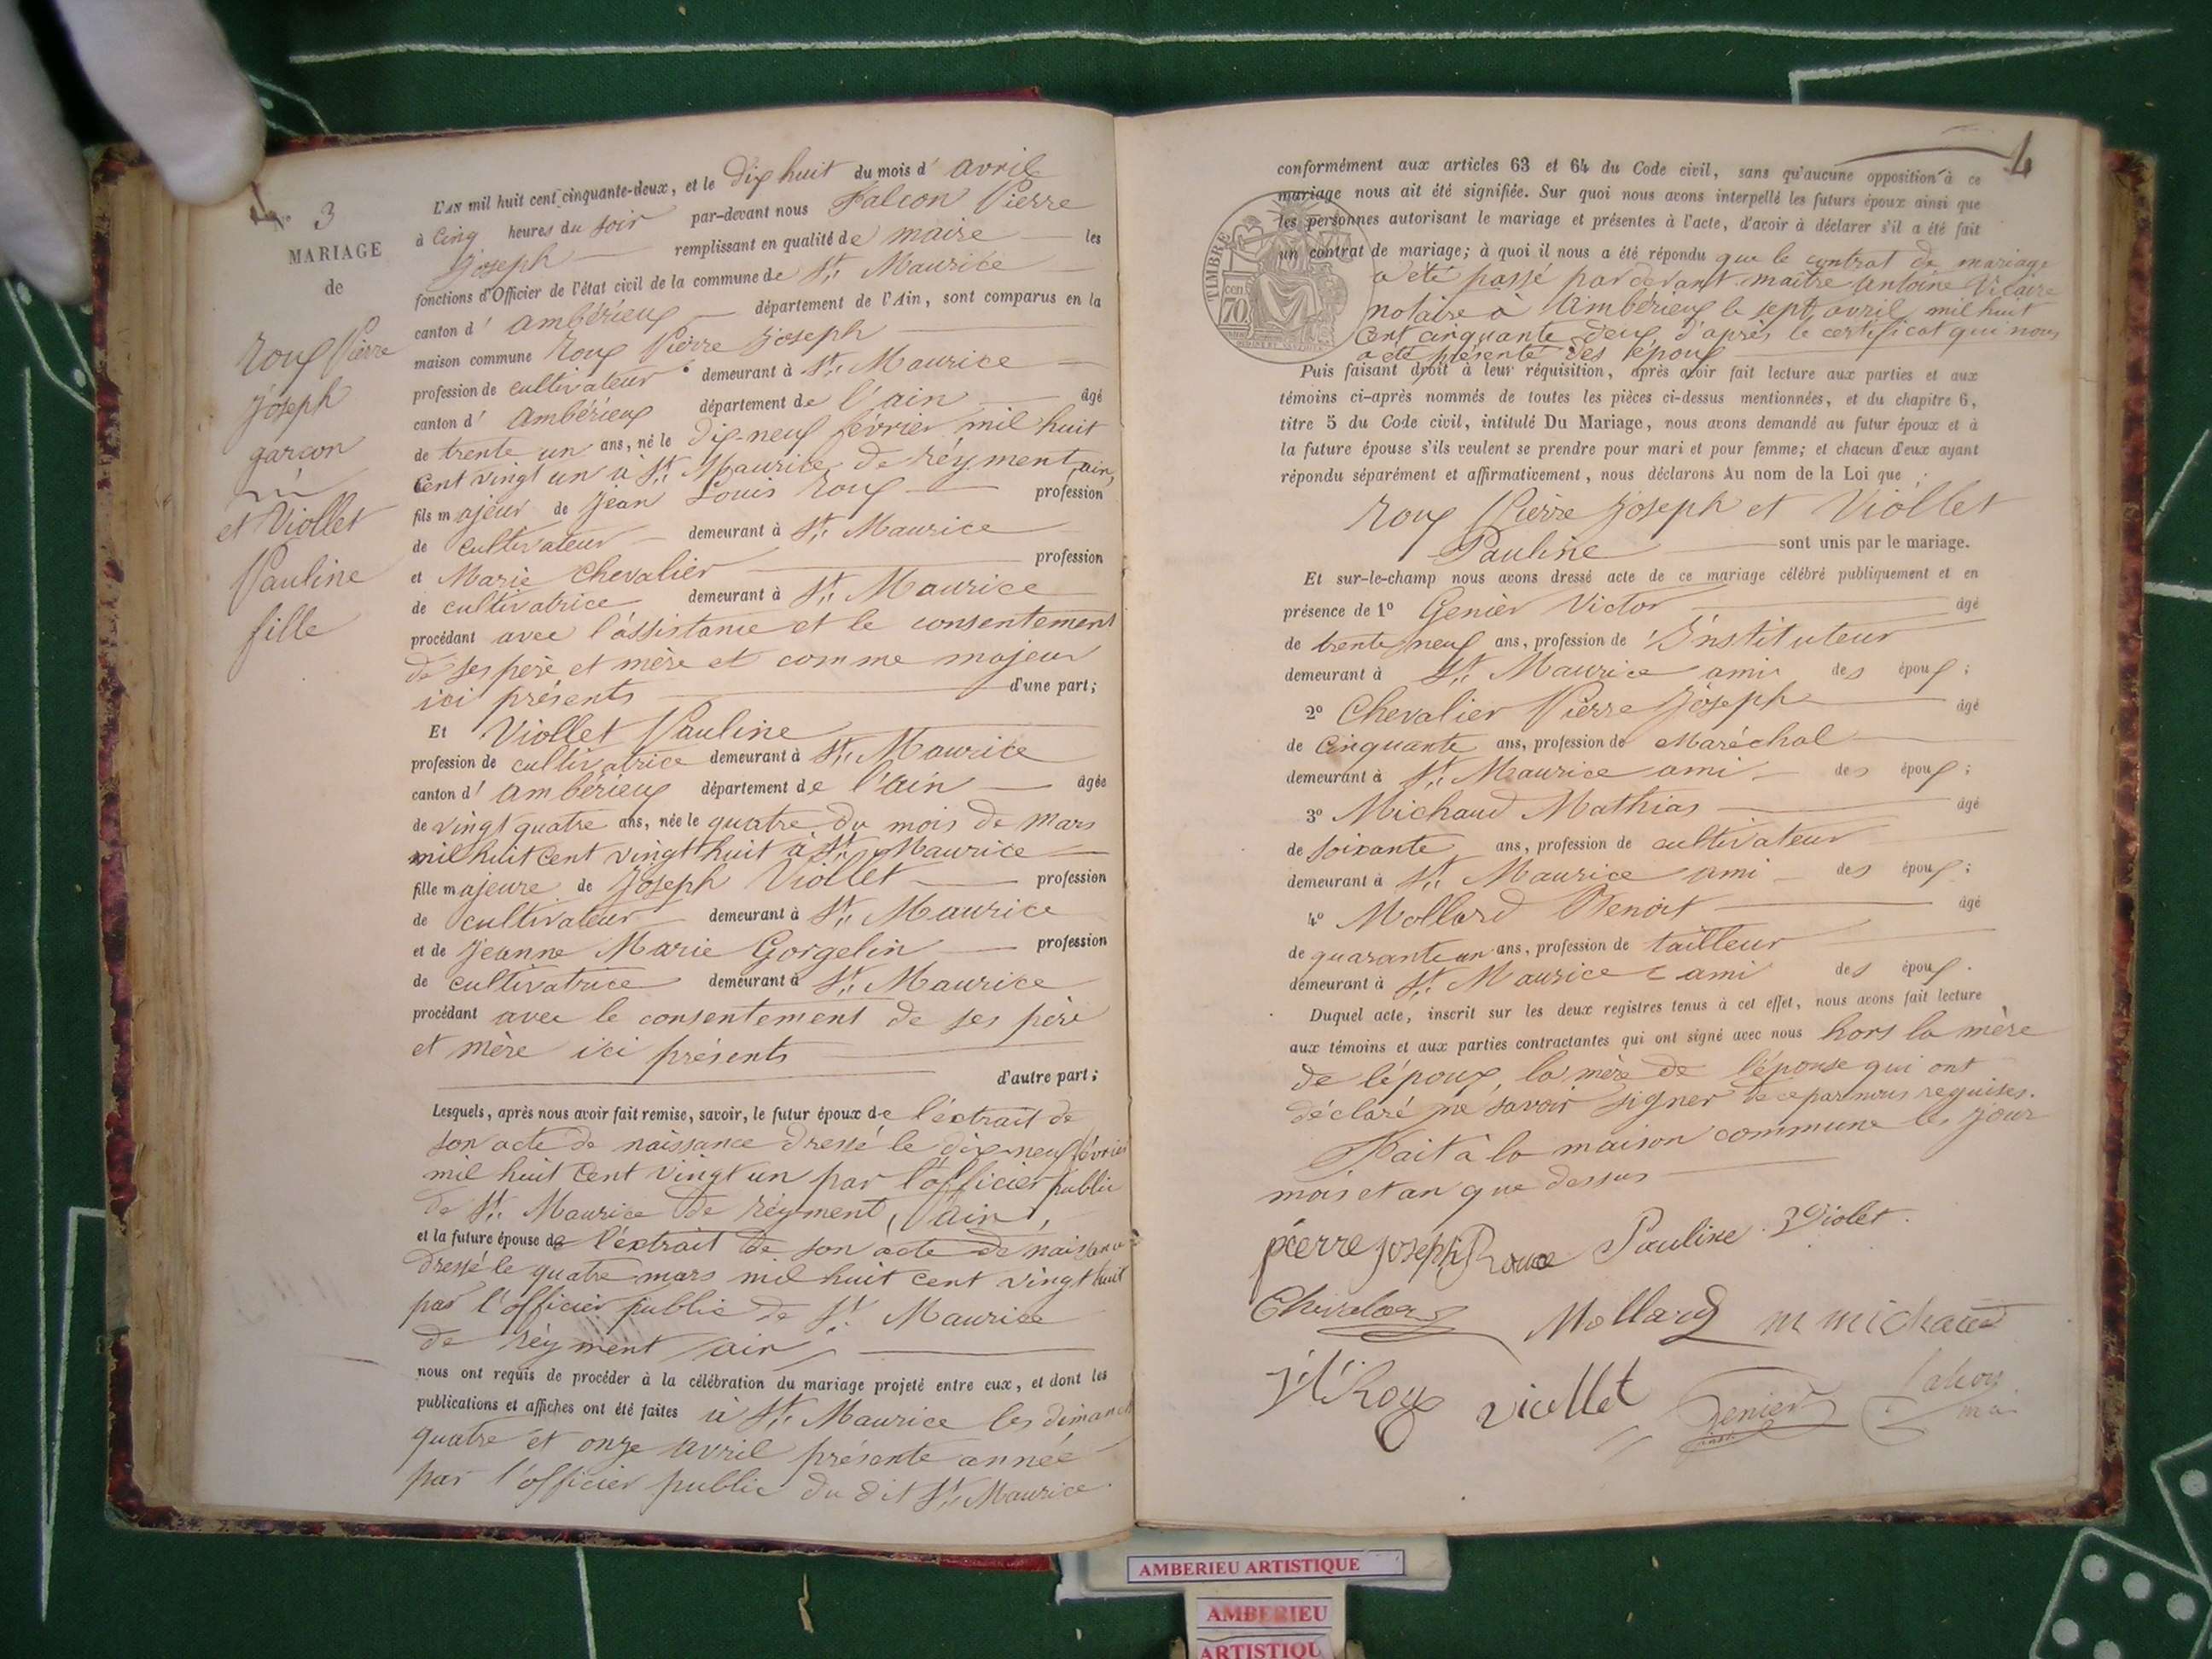 N° 3
MARIAGE
de
Roux Pierre
Joseph
garçon
et Viollet
Pauline
fille
L'AN mil huit cent cinquante-deux, et le dix huit du mois d' avril
à cinq heures du soir par-devant nous Falcon Pierre
Joseph remplissant en qualité de maire les
fonctions d'Officier de l'état civil de la commune de St. Maurice
canton d' ambérieux département de l'Ain, sont comparus en la
maison commune Roux Pierre Joseph
profession de cultivateur demeurant à St. Maurice
canton d' ambérieux département de l'ain âgé
de trente un ans, né le dix-neuf février mil huit
cent vingt un à St. Maurice de réyment, ain,
fils majeur de Jean Louis Roux profession
de cultivateur demeurant à St. Maurice
et Marie Chevalier profession
de cultivatrice demeurant à St. Maurice
procédant avec l'assistance et le consentement
de ses père et mère et comme majeur
ici présents d'une part;
Et Viollet Pauline
profession de cultivatrice demeurant à St. Maurice
canton d' ambérieux département de l'ain âgée
de vingt quatre ans, née le quatre du mois de mars
mil huit cent vingt huit à St. Maurice
fille majeure de Joseph Viollet profession
de cultivateur demeurant à St. Maurice
et de Jeanne Marie Gorgelin profession
de cultivatrice demeurant à St. Maurice
procédant avec le consentement de ses père
et mère ici présents
d'autre part;
Lesquels, après nous avoir fait remise, savoir, le futur époux de l'extrait de
son acte de naissance dressé le dix-neuf février
mil huit cent vingt un par l'officier public
de St. Maurice de réyment, (ain),
et la future épouse de l'extrait de son acte de naissance
dressé le quatre mars mil huit cent vingt huit
par l'officier public de St. Maurice
de réyment (ain)
nous ont requis de procéder à la célébration du mariage projeté entre eux, et dont les
publications et affiches ont été faites à St. Maurice les dimanch
quatre et onze avril présente année
par l'officier public du dit St. Maurice.
4
conformément aux articles 63 et 64 du Code civil, sans qu'aucune opposition à ce
mariage nous ait été signifiée. Sur quoi nous avons interpellé les futurs époux ainsi que
les personnes autorisant le mariage et présentes à l'acte, d'avoir à déclarer s'il a été fait
un contrat de mariage; à quoi il nous a été répondu que le contrat de mariage
a été passé pardevant maître antoine Vicaire
notaire à ambérieux le sept avril mil huit
cent cinquante deux d'après le certificat qui nous
a été présenté des époux
TIMBRE
70 cen
Puis faisant droit à leur réquisition, après avoir fait lecture aux parties et aux
témoins ci-après nommés de toutes les pièces ci-dessus mentionnées, et du chapitre 6,
titre 5 du Code civil, intitulé Du Mariage, nous avons demandé au futur époux et à
la future épouse s'ils veulent se prendre pour mari et pour femme; et chacun d'eux ayant
répondu séparément et affirmativement, nous déclarons Au nom de la Loi que
Roux Pierre Joseph et Viollet
Pauline sont unis par le mariage.
Et sur-le-champ nous avons dressé acte de ce mariage célébré publiquement et en
présence de 1° Genier Victor âgé
de trente neuf ans, profession de Instituteur
demeurant à St. Maurice ami des époux;
2° Chevalier Pierre Joseph âgé
de cinquante ans, profession de Maréchal
demeurant à St. Maurice ami des époux;
3° Michaud Mathias âgé
de soixante ans, profession de cultivateur
demeurant à St. Maurice ami des époux;
4° Mollard Benoit âgé
de quarante un ans, profession de tailleur
demeurant à St. Maurice ami des époux.
Duquel acte, inscrit sur les deux registres tenus à cet effet, nous avons fait lecture
aux témoins et aux parties contractantes qui ont signé avec nous hors la mère
de l'époux, la mère de l'épouse qui ont
déclaré ne savoir signer de ce par nous requises.
Fait à la maison commune les jour
mois et an que dessus
pierre joseph Roux Pauline Violet
Chevalier Mollard m michaud
J. L. Roux viollet Genier
AMBERIEU ARTISTIQUE
AMBERIEU
ARTISTIQU